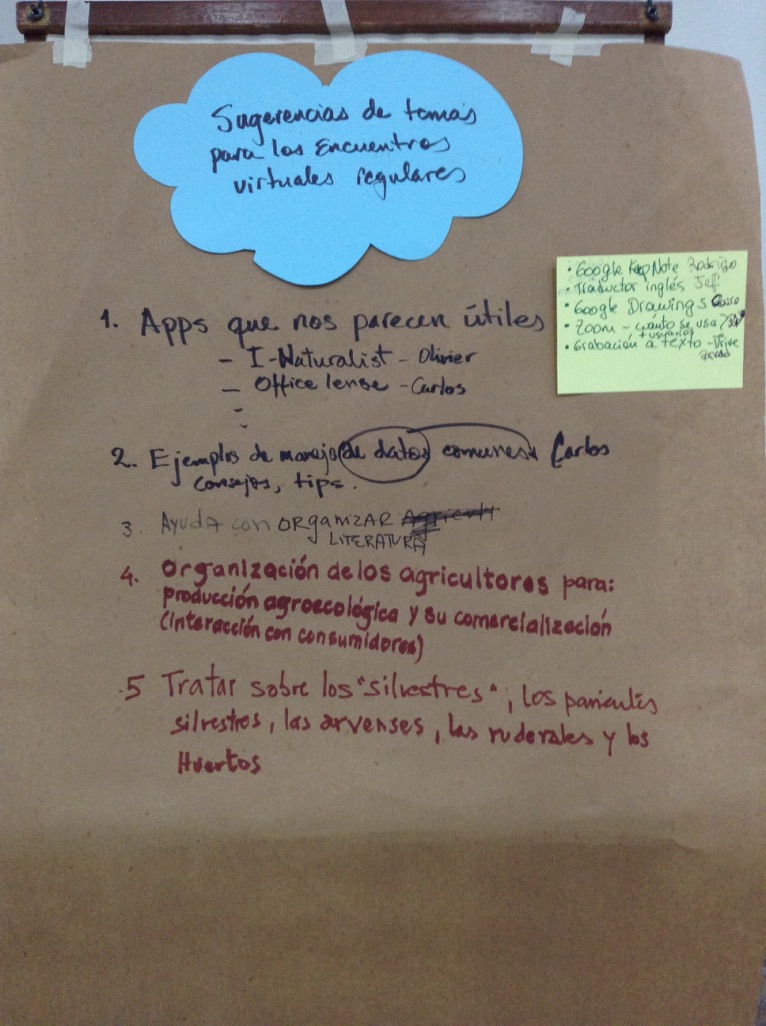 Sugerencias de temas
para los Encuentros
virtuales regulares
• Google Keep Note Rodrigo
• Traductor inglés Jeff
• Google Drawings
• Zoom - cuánto se usa
+ usuarios
• Grabación a texto - Drive
1. Apps que nos parecen útiles
- I-Naturalist - Olivier
- Office lense - Carlos
-
2. Ejemplos de manejo de datos comunes Carlos
consejos, tips.
3. AYUDA con ORGANIZAR Agricult
LITERATURA
4. Organización de los agricultores para:
producción agroecológica y su comercialización
(interacción con consumidores)
5 Tratar sobre los "silvestres", los parientes
silvestres, las arvenses, las ruderales y los
Huertos